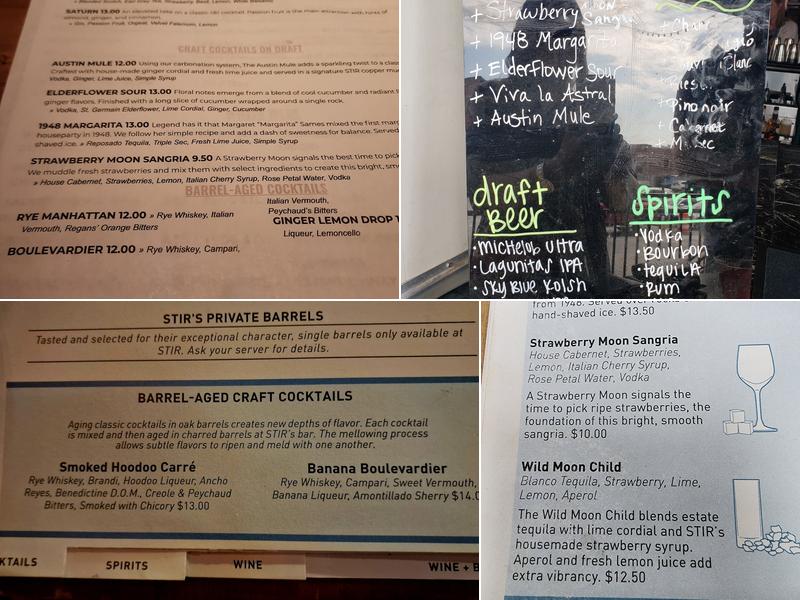 SATURN 13.00 An elevated take on a classic tiki cocktail. Passion fruit is the main attraction with hints of
almond, ginger, and cinnamon.
» Gin, Passion Fruit, Orgeat, Velvet Falernum, Lemon
CRAFT COCKTAILS ON DRAFT
AUSTIN MULE 12.00 Using our carbonation system, The Austin Mule adds a sparkling twist to a
Crafted with house-made ginger cordial and fresh lime juice and served in a signature STIR copper
Vodka, Ginger, Lime Juice, Simple Syrup
ELDERFLOWER SOUR 13.00 Floral notes emerge from a blend of cool cucumber and radiant
ginger flavors. Finished with a long slice of cucumber wrapped around a single rock.
» Vodka, St. Germain Elderflower, Lime Cordial, Ginger, Cucumber
1948 MARGARITA 13.00 Legend has it that Margaret "Margarita" Sames mixed the first
houseparty in 1948. We follow her simple recipe and add a dash of sweetness for balance. Served
shaved ice. » Reposado Tequila, Triple Sec, Fresh Lime Juice, Simple Syrup
STRAWBERRY MOON SANGRIA 9.50 A Strawberry Moon signals the best time to pick
We muddle fresh strawberries and mix them with select ingredients to create this bright,
» House Cabernet, Strawberries, Lemon, Italian Cherry Syrup, Rose Petal Water, Vodka
BARREL-AGED COCKTAILS
RYE MANHATTAN 12.00 » Rye Whiskey, Italian
Vermouth, Regans' Orange Bitters
BOULEVARDIER 12.00 » Rye Whiskey, Campari,
Italian Vermouth,
Peychaud's Bitters
GINGER LEMON DROP
Liqueur, Lemoncello
+ Strawberry Moon
Sangria
+ 1948 Margarita
+ Elderflower Sour
+ Viva la Astral
+ Austin Mule
Pinot noir
Cabernet
draft
Beer
• Michelob Ultra
• Lagunitas IPA
• Sky Blue Kolsh
Spirits
• Vodka
• Bourbon
• tequila
• Rum
STIR'S PRIVATE BARRELS
Tasted and selected for their exceptional character, single barrels only available at
STIR. Ask your server for details.
BARREL-AGED CRAFT COCKTAILS
Aging classic cocktails in oak barrels creates new depths of flavor. Each cocktail
is mixed and then aged in charred barrels at STIR's bar. The mellowing process
allows subtle flavors to ripen and meld with one another.
Smoked Hoodoo Carré
Rye Whiskey, Brandi, Hoodoo Liqueur, Ancho
Reyes, Benedictine D.O.M., Creole & Peychaud
Bitters, Smoked with Chicory $13.00
Banana Boulevardier
Rye Whiskey, Campari, Sweet Vermouth,
Banana Liqueur, Amontillado Sherry $14.0
KTAILS
SPIRITS
WINE
WINE + B
from 1948. Served over
hand-shaved ice. $13.50
Strawberry Moon Sangria
House Cabernet, Strawberries,
Lemon, Italian Cherry Syrup,
Rose Petal Water, Vodka
A Strawberry Moon signals the
time to pick ripe strawberries, the
foundation of this bright, smooth
sangria. $10.00
Wild Moon Child
Blanco Tequila, Strawberry, Lime,
Lemon, Aperol
The Wild Moon Child blends estate
tequila with lime cordial and STIR's
housemade strawberry syrup.
Aperol and fresh lemon juice add
extra vibrancy. $12.50